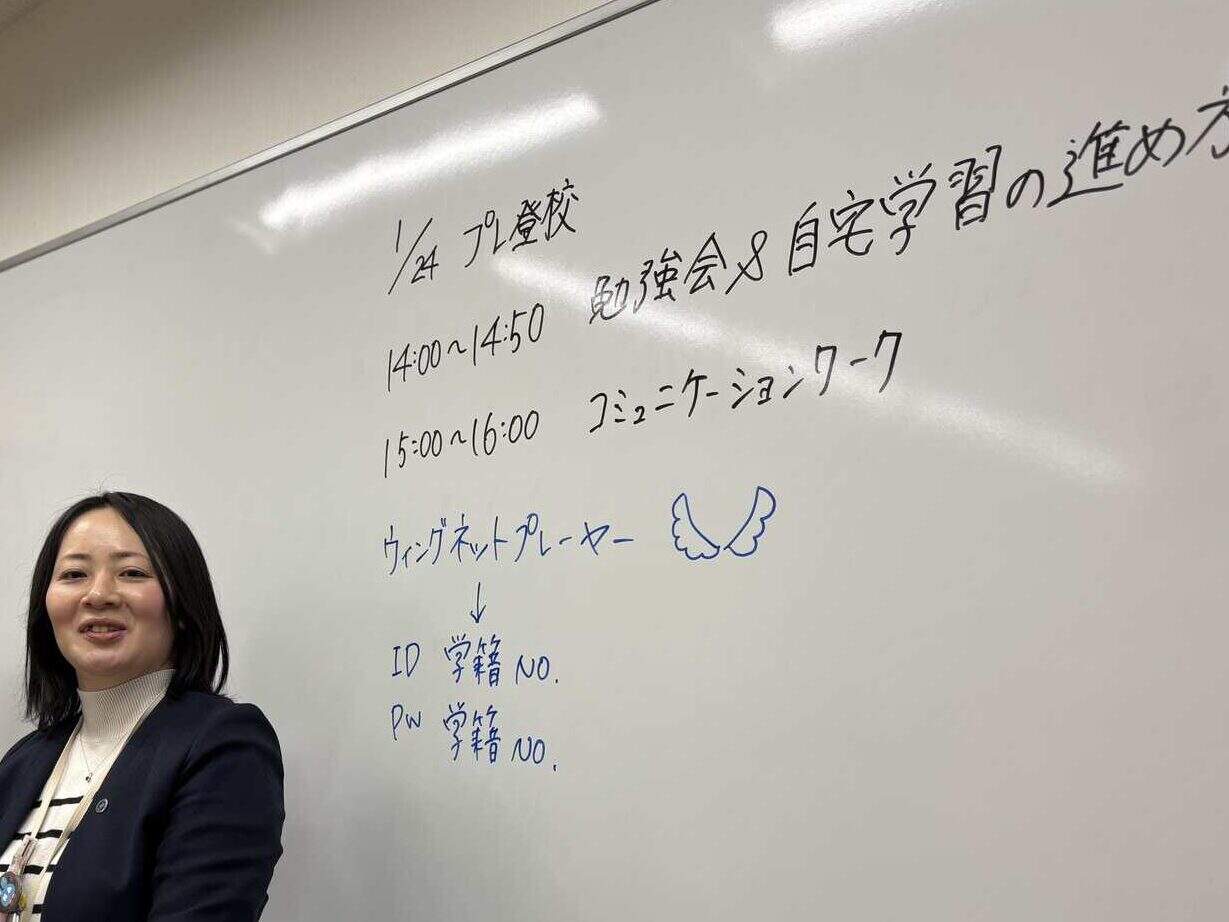 1/24 プレ登校
14:00～14:50 勉強会&自宅学習の進め方
15:00～16:00 コミュニケーションワーク
ウィングネットプレーヤー
↓
ID 学籍 NO.
PW 学籍 NO.